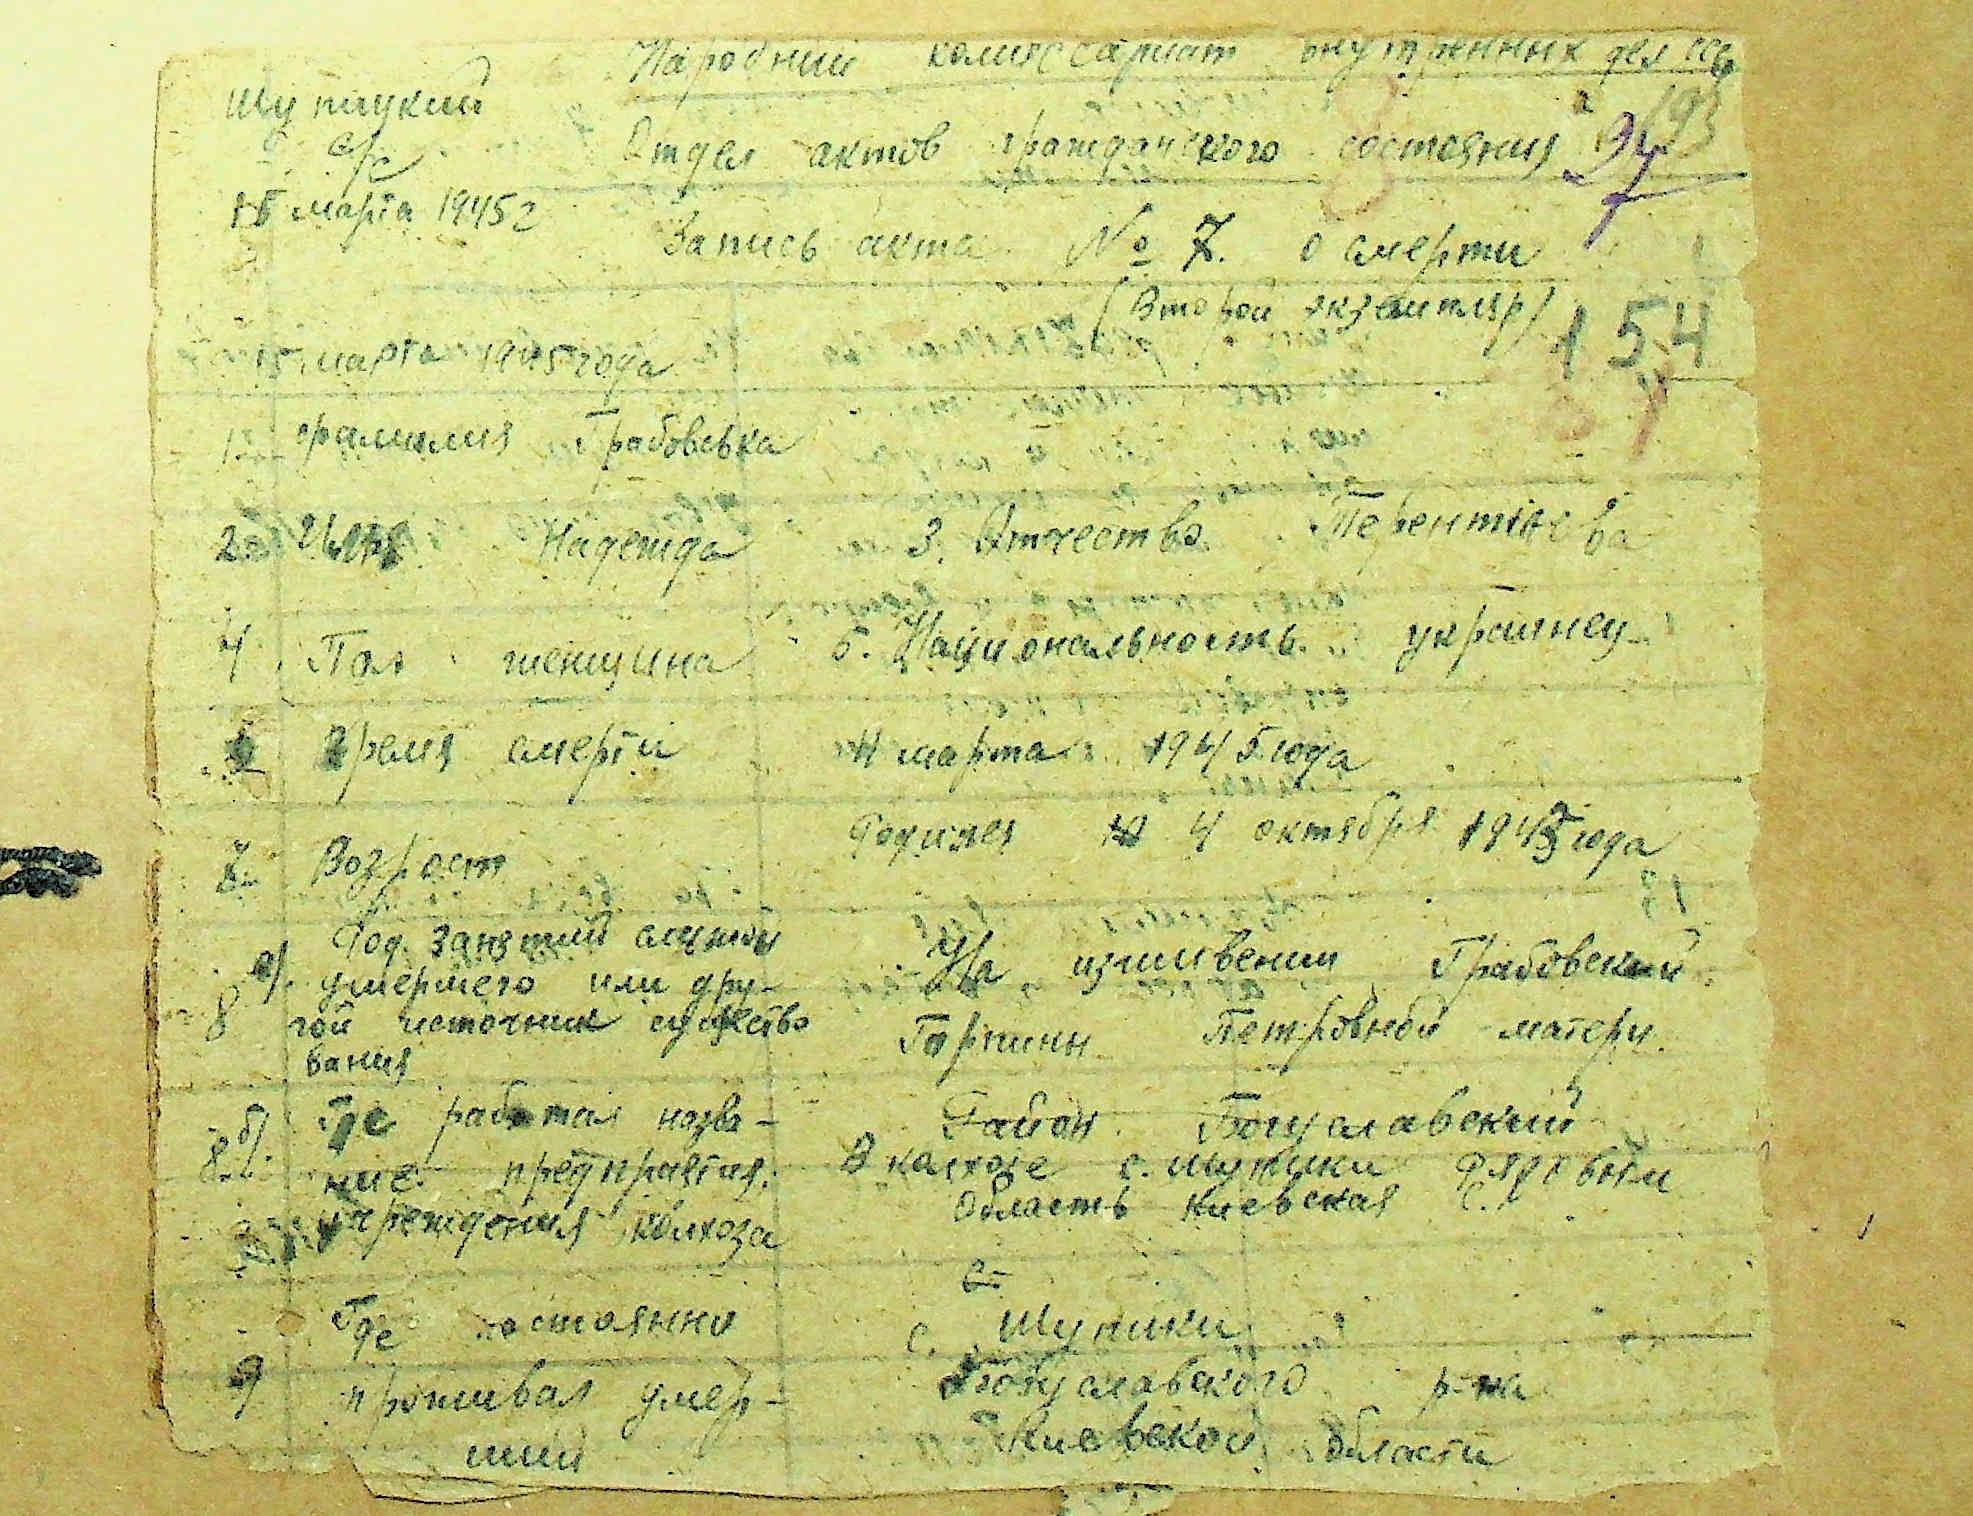 Народний комиссариат внутренних дел ССР
Шупицкий
с/с
Отдел актов гражданского состояния
193
94
15 марта 1945г
Запись акта № 7. о смерти
(Второй экземпляр)
154
15 марта 1945 года
1. фамилия Грабовська
2. Имя Надежда 3. Отчество Терентіева
4. Пол женщина 5. Национальность украинец
6 время смерти 4 марта 1945 года
7 Возраст Родился 4 октября 1943 года
8 а). Род занятий службы
умершего или дру-
гой источник существо
вания
На изживении Грабовской
Горпины Петровной матери.
8 б). Где работал назва-
ние предприятия.
учреждения колхоза
Район Богуславский
В колхозе с. Шупики Рядовым
Область Киевская с.
9 Где постоянно
проживал умер-
ший
с. Шупики
Богуславского р-на
Киевской области